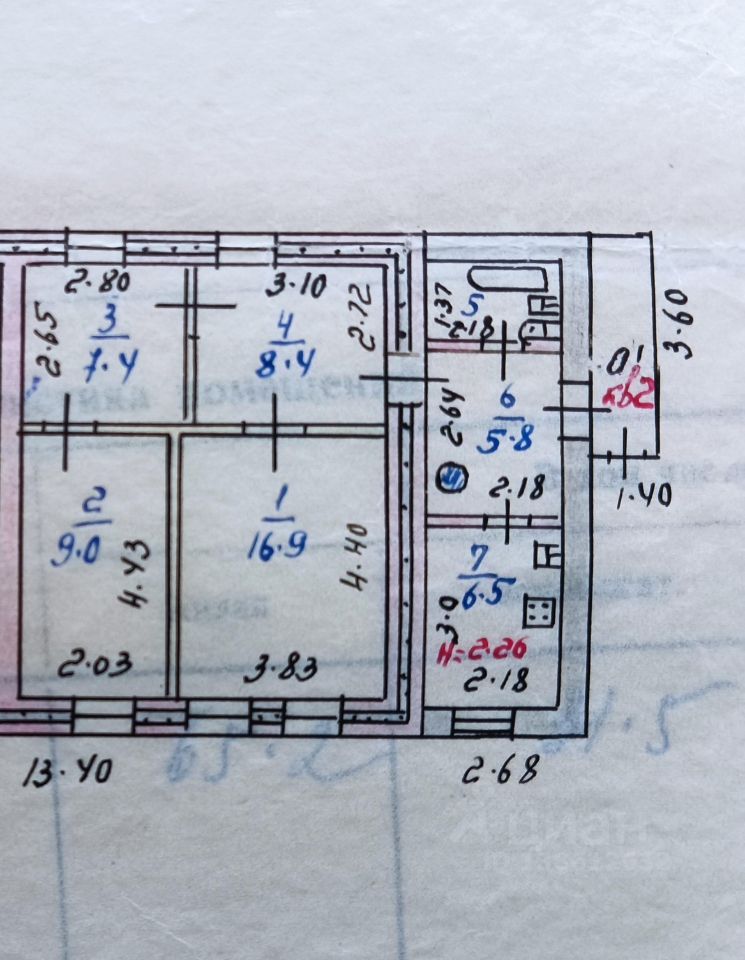 2.80
3.10
2.65
3
7.4
4
8.4
2.72
1.37
5
2.18
3.60
кв2
6
5.8
2.64
2.18
1.40
2
9.0
4.43
2.03
1
16.9
4.40
3.83
7
6.5
3.0
H=2.26
2.18
13.40
2.68